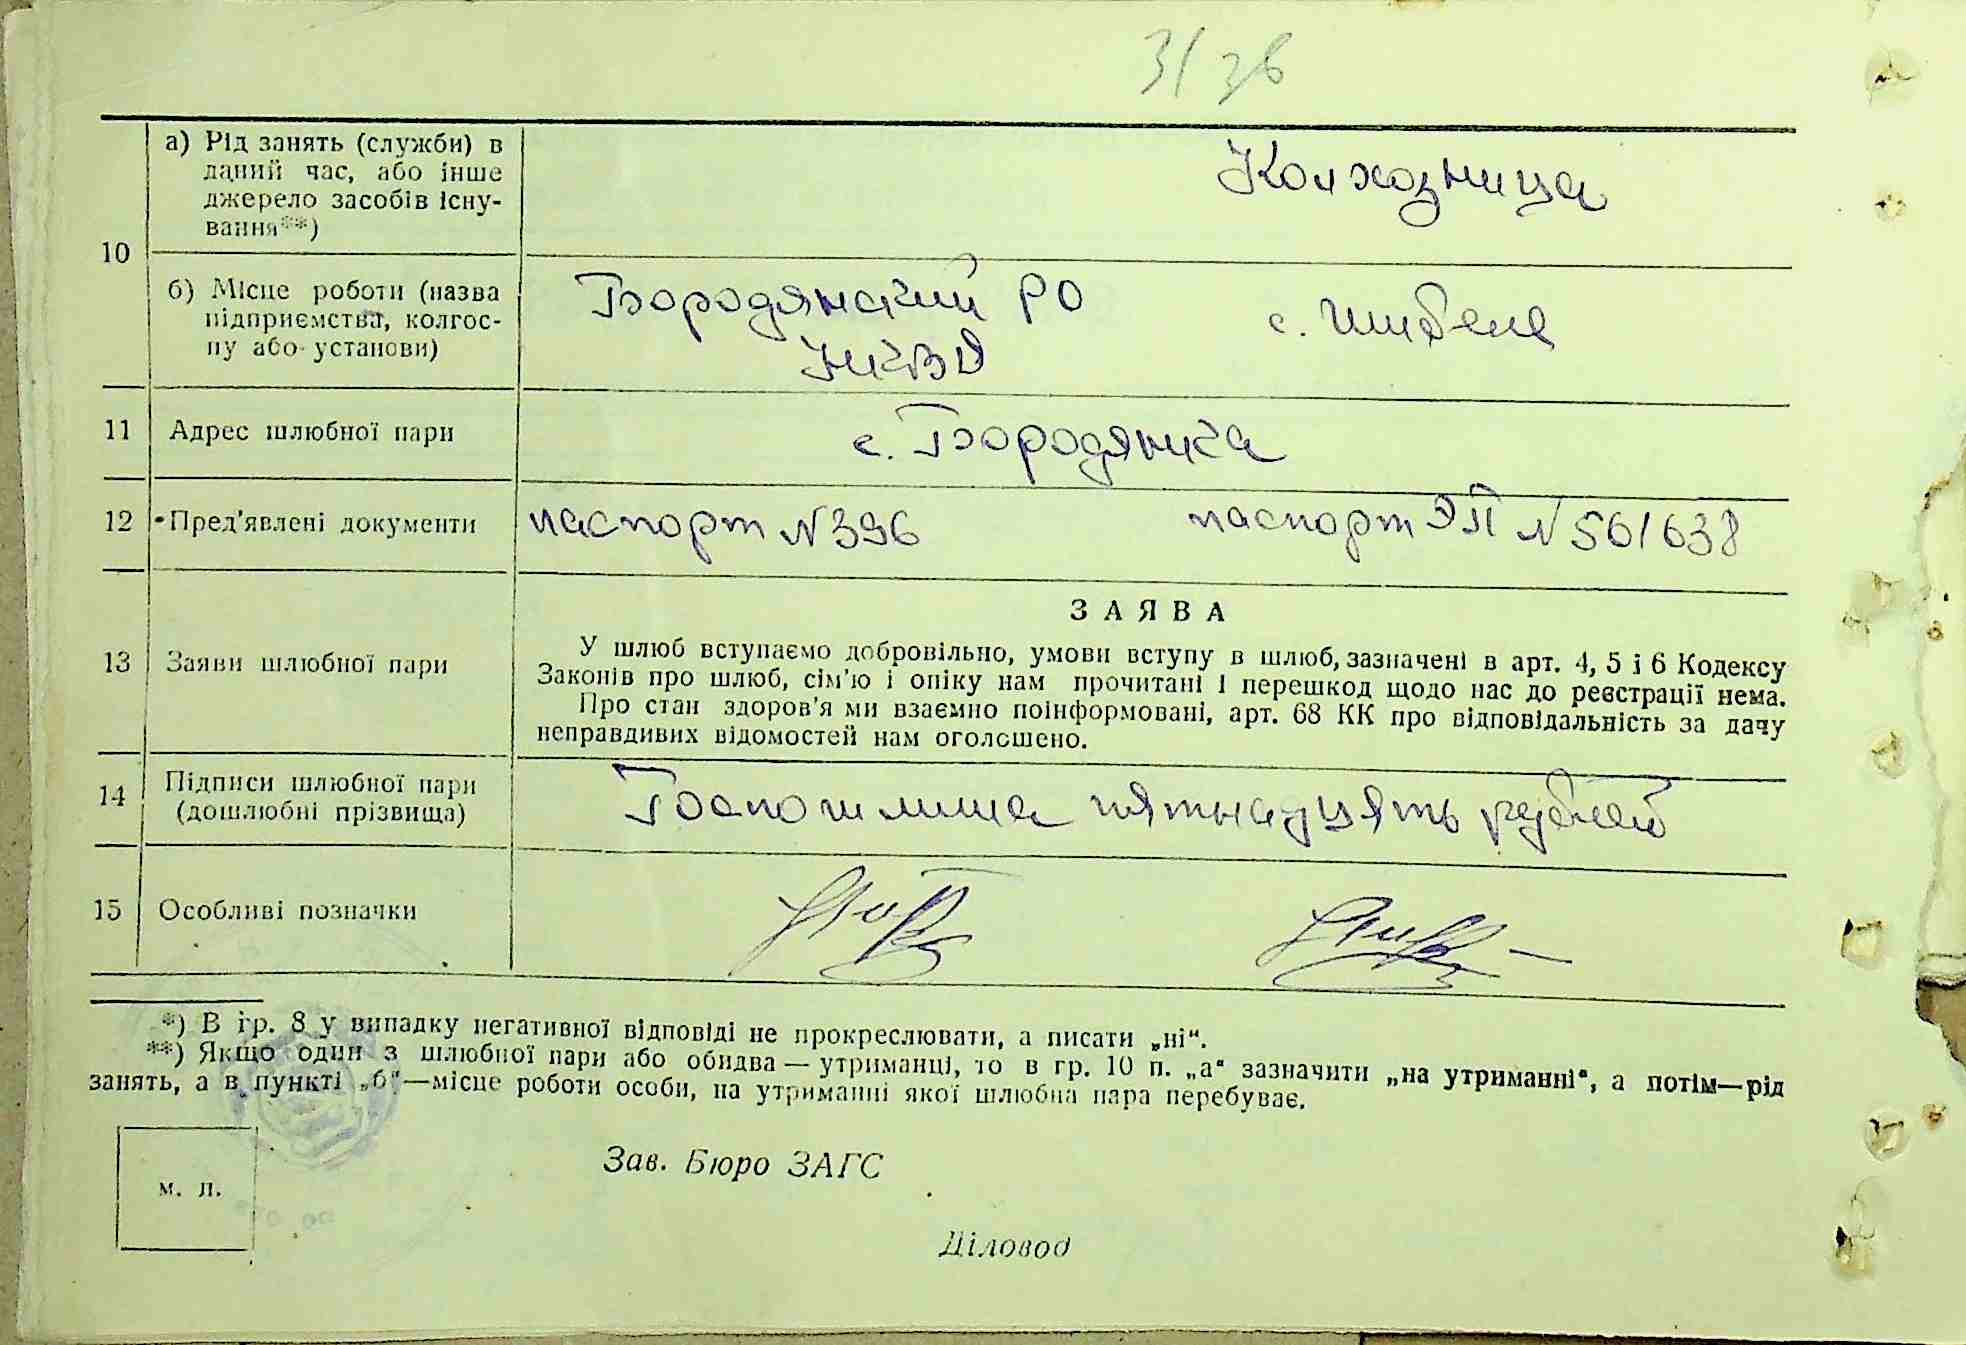 31 зв
10
а) Рід занять (служби) в
даний час, або інше
джерело засобів існу-
вання**)
Колхозница
б) Місце роботи (назва
підприємства, колгос-
пу або установи)
Бородянский РО
НКВД
с. Шибене
11
Адрес шлюбної пари
с. Бородянка
12
Пред'явлені документи
паспорт №396
паспорт ЭП №561638
13
Заяви шлюбної пари
ЗАЯВА
У шлюб вступаємо добровільно, умови вступу в шлюб, зазначені в арт. 4, 5 і 6 Кодексу
Законів про шлюб, сім'ю і опіку нам прочитані і перешкод щодо нас до реєстрації нема.
Про стан здоров'я ми взаємно поінформовані, арт. 68 КК про відповідальність за дачу
неправдивих відомостей нам оголошено.
14
Підписи шлюбної пари
(дошлюбні прізвища)
Госпошлина пятнадцять рублей
15
Особливі позначки
*) В гр. 8 у випадку негативної відповіді не прокреслювати, а писати „ні“.
**) Якщо один з шлюбної пари або обидва — утриманці, то в гр. 10 п. „а“ зазначити „на утриманні“, а потім—рід
занять, а в пункті „б“—місце роботи особи, на утриманні якої шлюбна пара перебуває.
Зав. Бюро ЗАГС
м. п.
Діловод